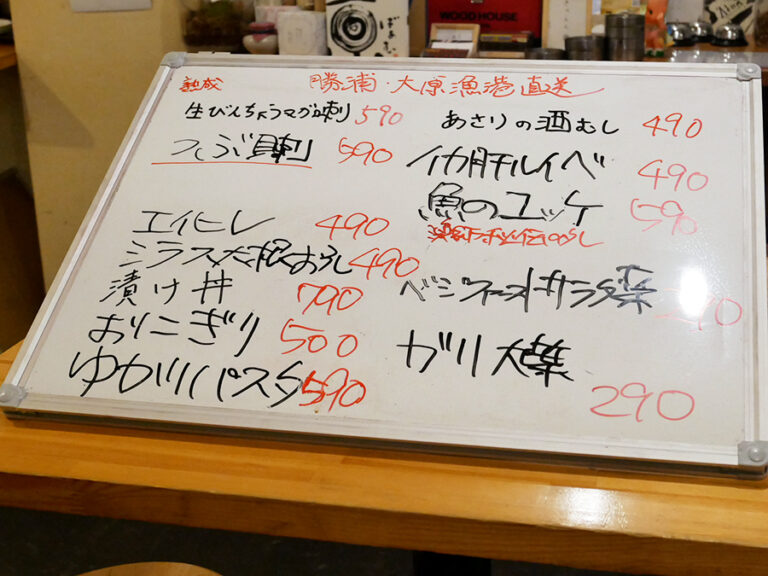 WOOD HOUSE
熟成 勝浦・大原漁港直送
生びんちょうマグロ刺 590
つぶ貝刺 590
エイヒレ 490
シラス大根おろし 490
漬け丼 790
おりこぎり 500
ゆかりパスタ 590
あさりの酒むし 490
イカ肝ルイベ 490
魚のユッケ 590
ベジファーストサラダ 290
ガリ大葉
290